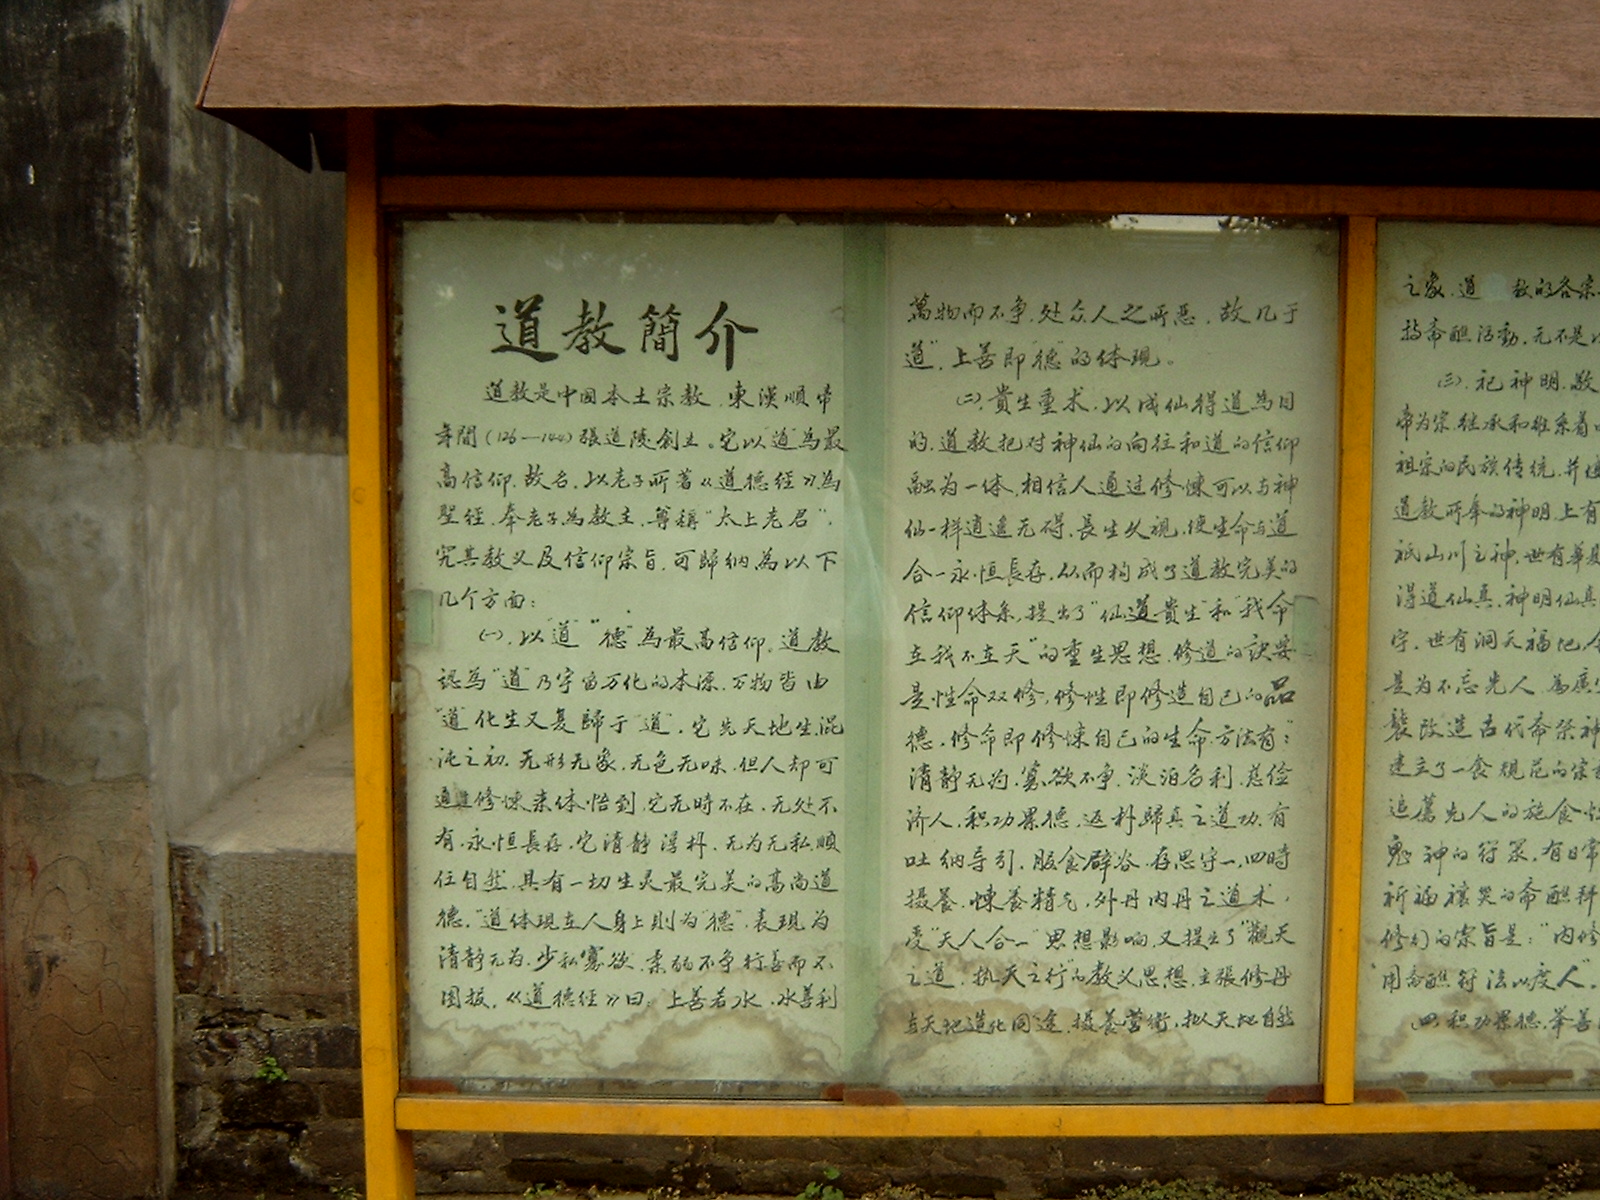 道教簡介
道教是中国本土宗教，東漢順帝
年間（126—144）張道陵創立。它以“道”為最
高信仰，故名，以老子所著《道德经》為
聖经，奉老子為教主，尊稱“太上老君”，
究其教义及信仰宗旨，可歸纳為以下
几个方面：
㈠，以“道”“德”為最高信仰，道教
認為“道”乃宇宙万化的本源，万物皆由
“道”化生又复歸于“道”，它先天地生，混
沌之初，无形无象，无色无味，但人却可
通过修煉来体悟到，它无時不在，无处不
有，永恒長存，它清静淳朴，无为无私，順
任自然，具有一切生灵最完美的高尚道
德，“道体現在人身上則为“德”，表現为
清静无为，少私寡欲，柔弱不争，行善而不
图报，《道德经》曰：上善若水，水善利
萬物而不争，处众人之所恶，故几于
道”，上善即“德”的体現。
㈡，貴生重术，以成仙得道為目
的，道教把对神仙的向往和道的信仰
融为一体，相信人通过修煉可以与神
仙一样逍遥无碍，長生久視，使生命与道
合一，永恒長存，从而构成了道教完美的
信仰体系，提出了“仙道貴生”和“我命
在我不在天”的重生思想，修道的訣要
是性命双修，修性即修造自己的品
德，修命即修煉自己的生命，方法有：
清静无为，寡欲不争，淡泊名利，慈俭
济人，积功累德，返朴歸真之道功，有
吐纳导引，服食辟谷，存思守一，四時
摄养，煉養精气，外丹内丹之道术，
受“天人合一”思想影响，又提出了“觀天
之道，执天之行”的教义思想，主張修丹
与天地造化同途，摄養营衛，拟天地自然
之象，道 教的各宗
持斋醮活動，无不是以
㈢，祀神明，敬
帝为宗，继承和维系着中
祖宗的民族传统，并使
道教所奉的神明，上有
祇山川之神，世有華夏
得道仙真，神明仙真
宇，世有洞天福地，令
是为不忘先人，為廣
襲改造古代斋祭神
建立了一套規范的宗教
追薦先人的施食
鬼神的符箓，有日常
祈福禳災的斋醮科
修行的宗旨是：“内修
用斋醮符法以度人”，
㈣，积功累德，举善